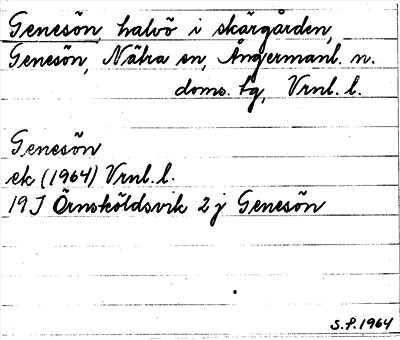 Genesön, halvö i skärgården,
Genesön, Nätra sn, Ångermanl. n.
doms. tg, Vrnl. l.
Genesön
ek (1964) Vrnl. l.
19 J Örnsköldsvik 2 j Genesön
S.P. 1964